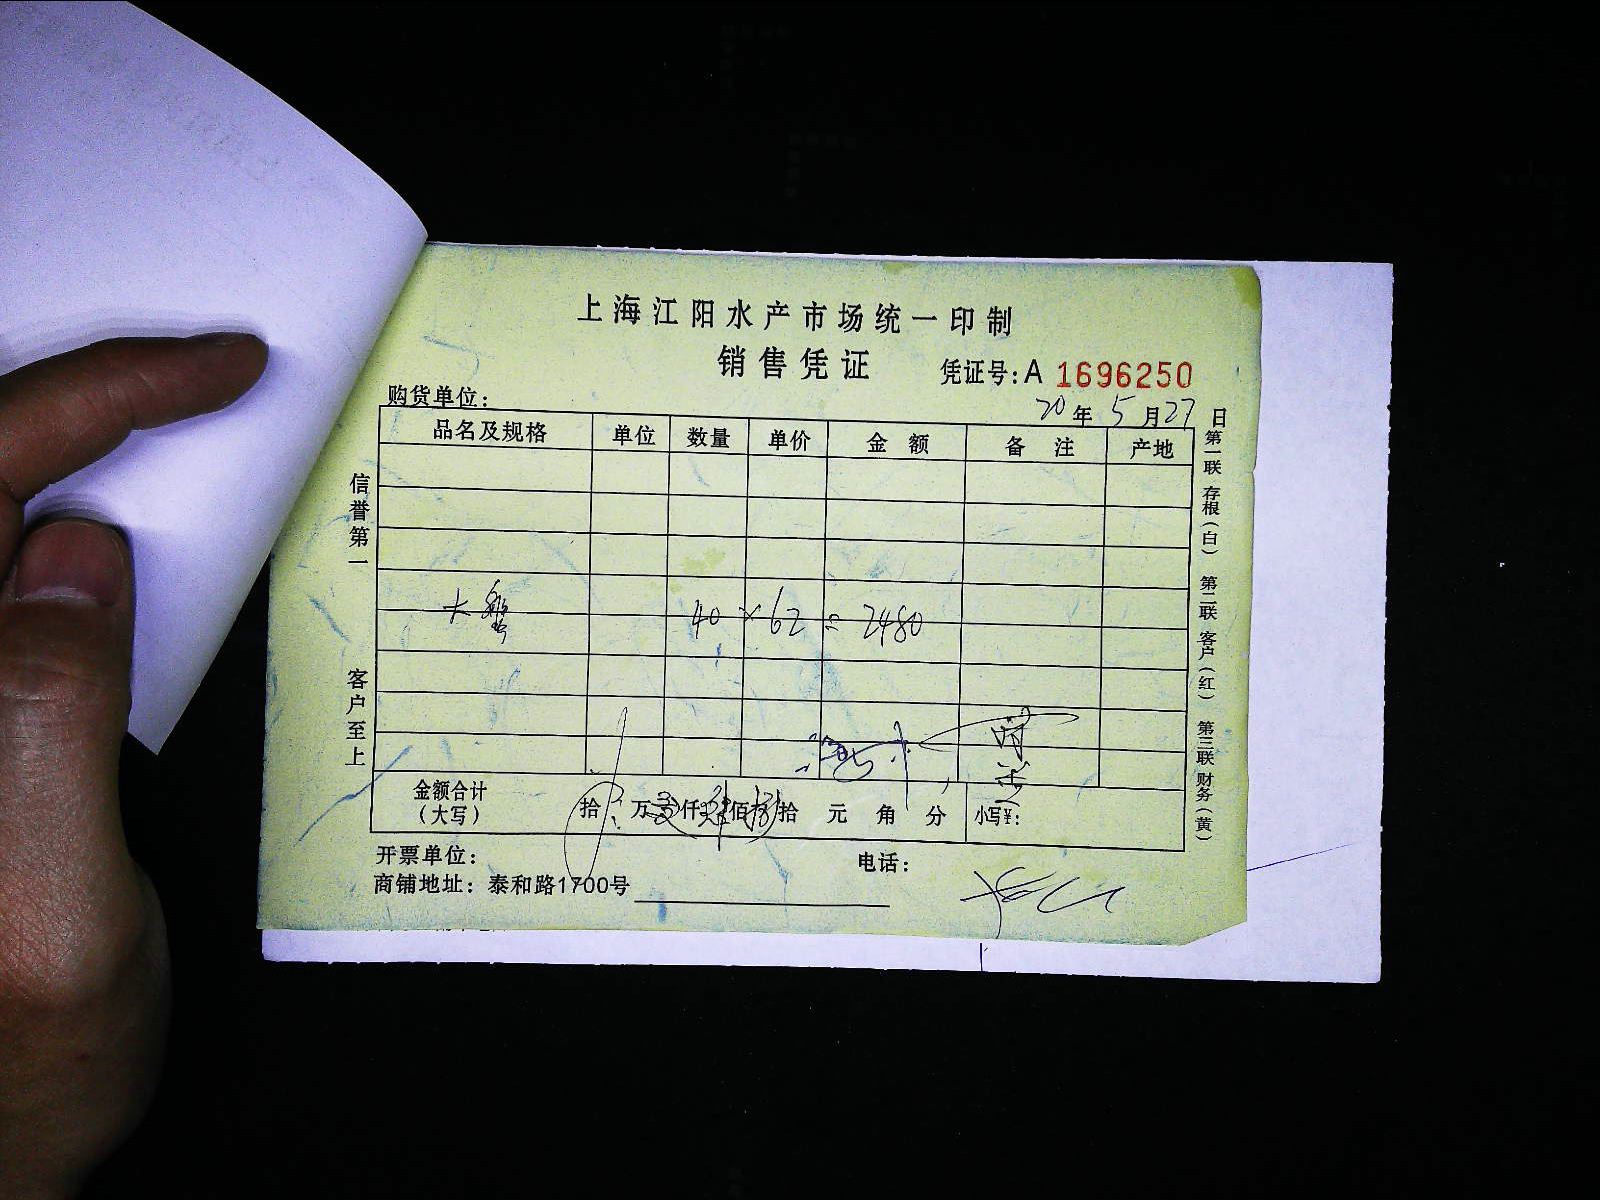 上海江阳水产市场统一印制
销售凭证 凭证号:A 1696250
购货单位: 20年5月27日
品名及规格 单位 数量 单价 金额 备注 产地
大蟹 40 × 62 = 2480
金额合计(大写) 拾 万 仟 佰 拾 元 角 分 小写¥:
开票单位: 电话:
商铺地址: 泰和路1700号
信誉第一 客户至上
第一联 存根(白) 第二联 客户(红) 第三联 财务(黄)